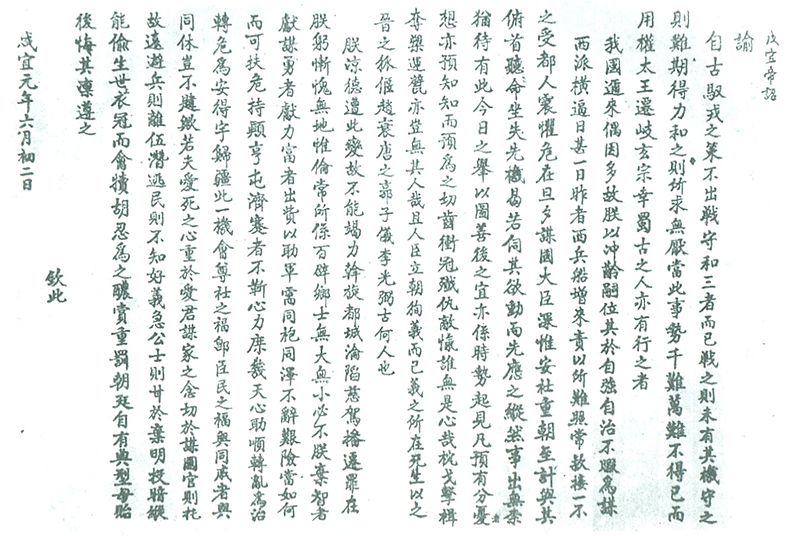 咸宜帝詔
諭
自古馭戎之策不出戰守和三者而已戰之則未有其機守之
則難期得力和之則所求無厭當此事勢千難萬難不得已而
用權太王遷岐玄宗幸蜀古之人亦有行之者
我國邇來偶因多故朕以冲齡嗣位其於自強自治不暇為謀
西派橫逼日甚一日昨者西兵船增來責以所難照常款接一不
之受都人震懼危在旦夕謀國大臣深惟安社重朝至計與其
俯首聽命坐失先機曷若伺其欲動而先應之縱然事出無柰
猶待有此今日之舉以圖善後之宜亦係時勢起見凡預有分憂
想亦預知知而預為之切齒衝冠殲仇敵愾誰無是心哉枕戈擊楫
奪槊運甓亦豈無其人哉且人臣立朝徇義而已義之所在死生以之
晉之狐偃趙衰唐之郭子儀李光弼古何人也
朕涼德遭此變故不能竭力斡旋都城淪陷慈駕播遷罪在
朕躬慚愧無地惟倫常所係百辟鄉士無大無小必不朕棄智者
獻謀勇者獻力富者出貲以助軍需同袍同澤不辭艱險當如何
而可扶危持顛亨屯濟蹇者不靳心力庶幾天心助順轉亂為治
轉危為安得宇歸疆此一機會尊社之福即臣民之福與同戚者與
同休豈不韙歟若夫愛死之心重於愛君謀家之念切於謀國官則托
故遠避兵則離伍潛逃民則不知好義急公士則甘於棄明投暗縱
能偷生世衣冠而禽犢胡忍為之醲賞重罰朝廷自有典型毋貽
後悔其凜遵之
欽此
咸宜元年六月初二日